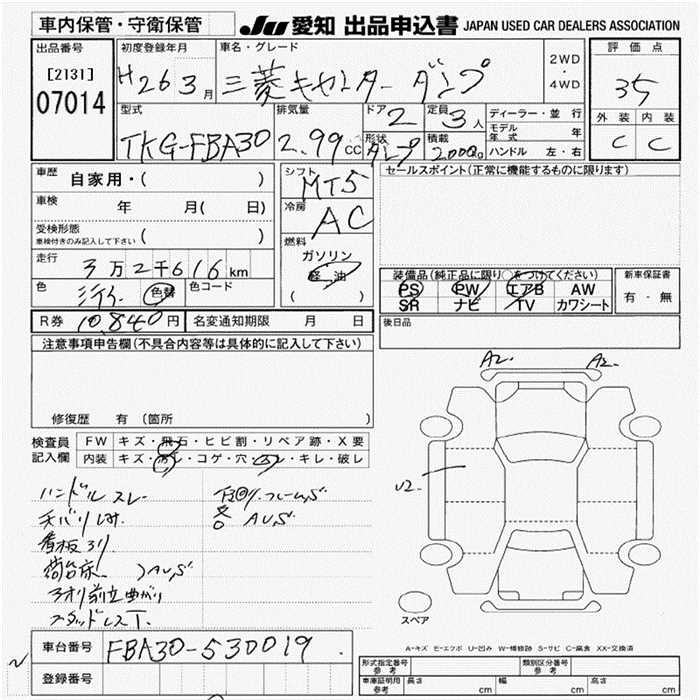 車内保管・守衛保管 JU 愛知 出品申込書 JAPAN USED CAR DEALERS ASSOCIATION
出品番号 初度登録年月 車名・グレード 評価点
[2131] H 26 3月 三菱キャンターダンプ 2WD・4WD 35
07014 外装 内装
型式 排気量 ドア 定員 ディーラー・並行 C C
TKG-FBA30 2.99cc 2 3人 モデル年式 年
形状 ダンプ 積載 2000kg ハンドル 左・右
車歴 自家用・( ) シフト MT5 セールスポイント(正常に機能するものに限ります)
車検 年 月( 日) 冷房 AC
受検形態
車検付きのみ記入して下さい ( ) 燃料
走行 3万2千616km ガソリン
色 色替 色コード 軽油 装備品(純正品に限り○をつけてください) 新車保証書
( ) PS PW エアB AW 有・無
SR ナビ TV カワシート
R券 10,840円 名変通知期限 月 日 後日品
注意事項申告欄(不具合内容等は具体的に記入して下さい)
A2. A2.
修復歴 有 (箇所
検査員 FW キズ・飛石・ヒビ割・リペア跡・X要
記入欄 内装 キズ・汚レ・コゲ・穴・スレ・キレ・破レ
U2.
ハンドルスレ 下回り.フレームS
AUS
看板ヌリ
荷台床 )AUS
アオリ前立曲がり
スタッドレスT.
スペア
車台番号 FBA30-530019.
登録番号
A-キズ E-エクボ U-凹み W-補修跡 S-サビ C-腐食 XX-交換済
型式指定番号 参考 類別区分番号 参考
車庫証明用 参考 長さ cm 幅 cm 高さ cm